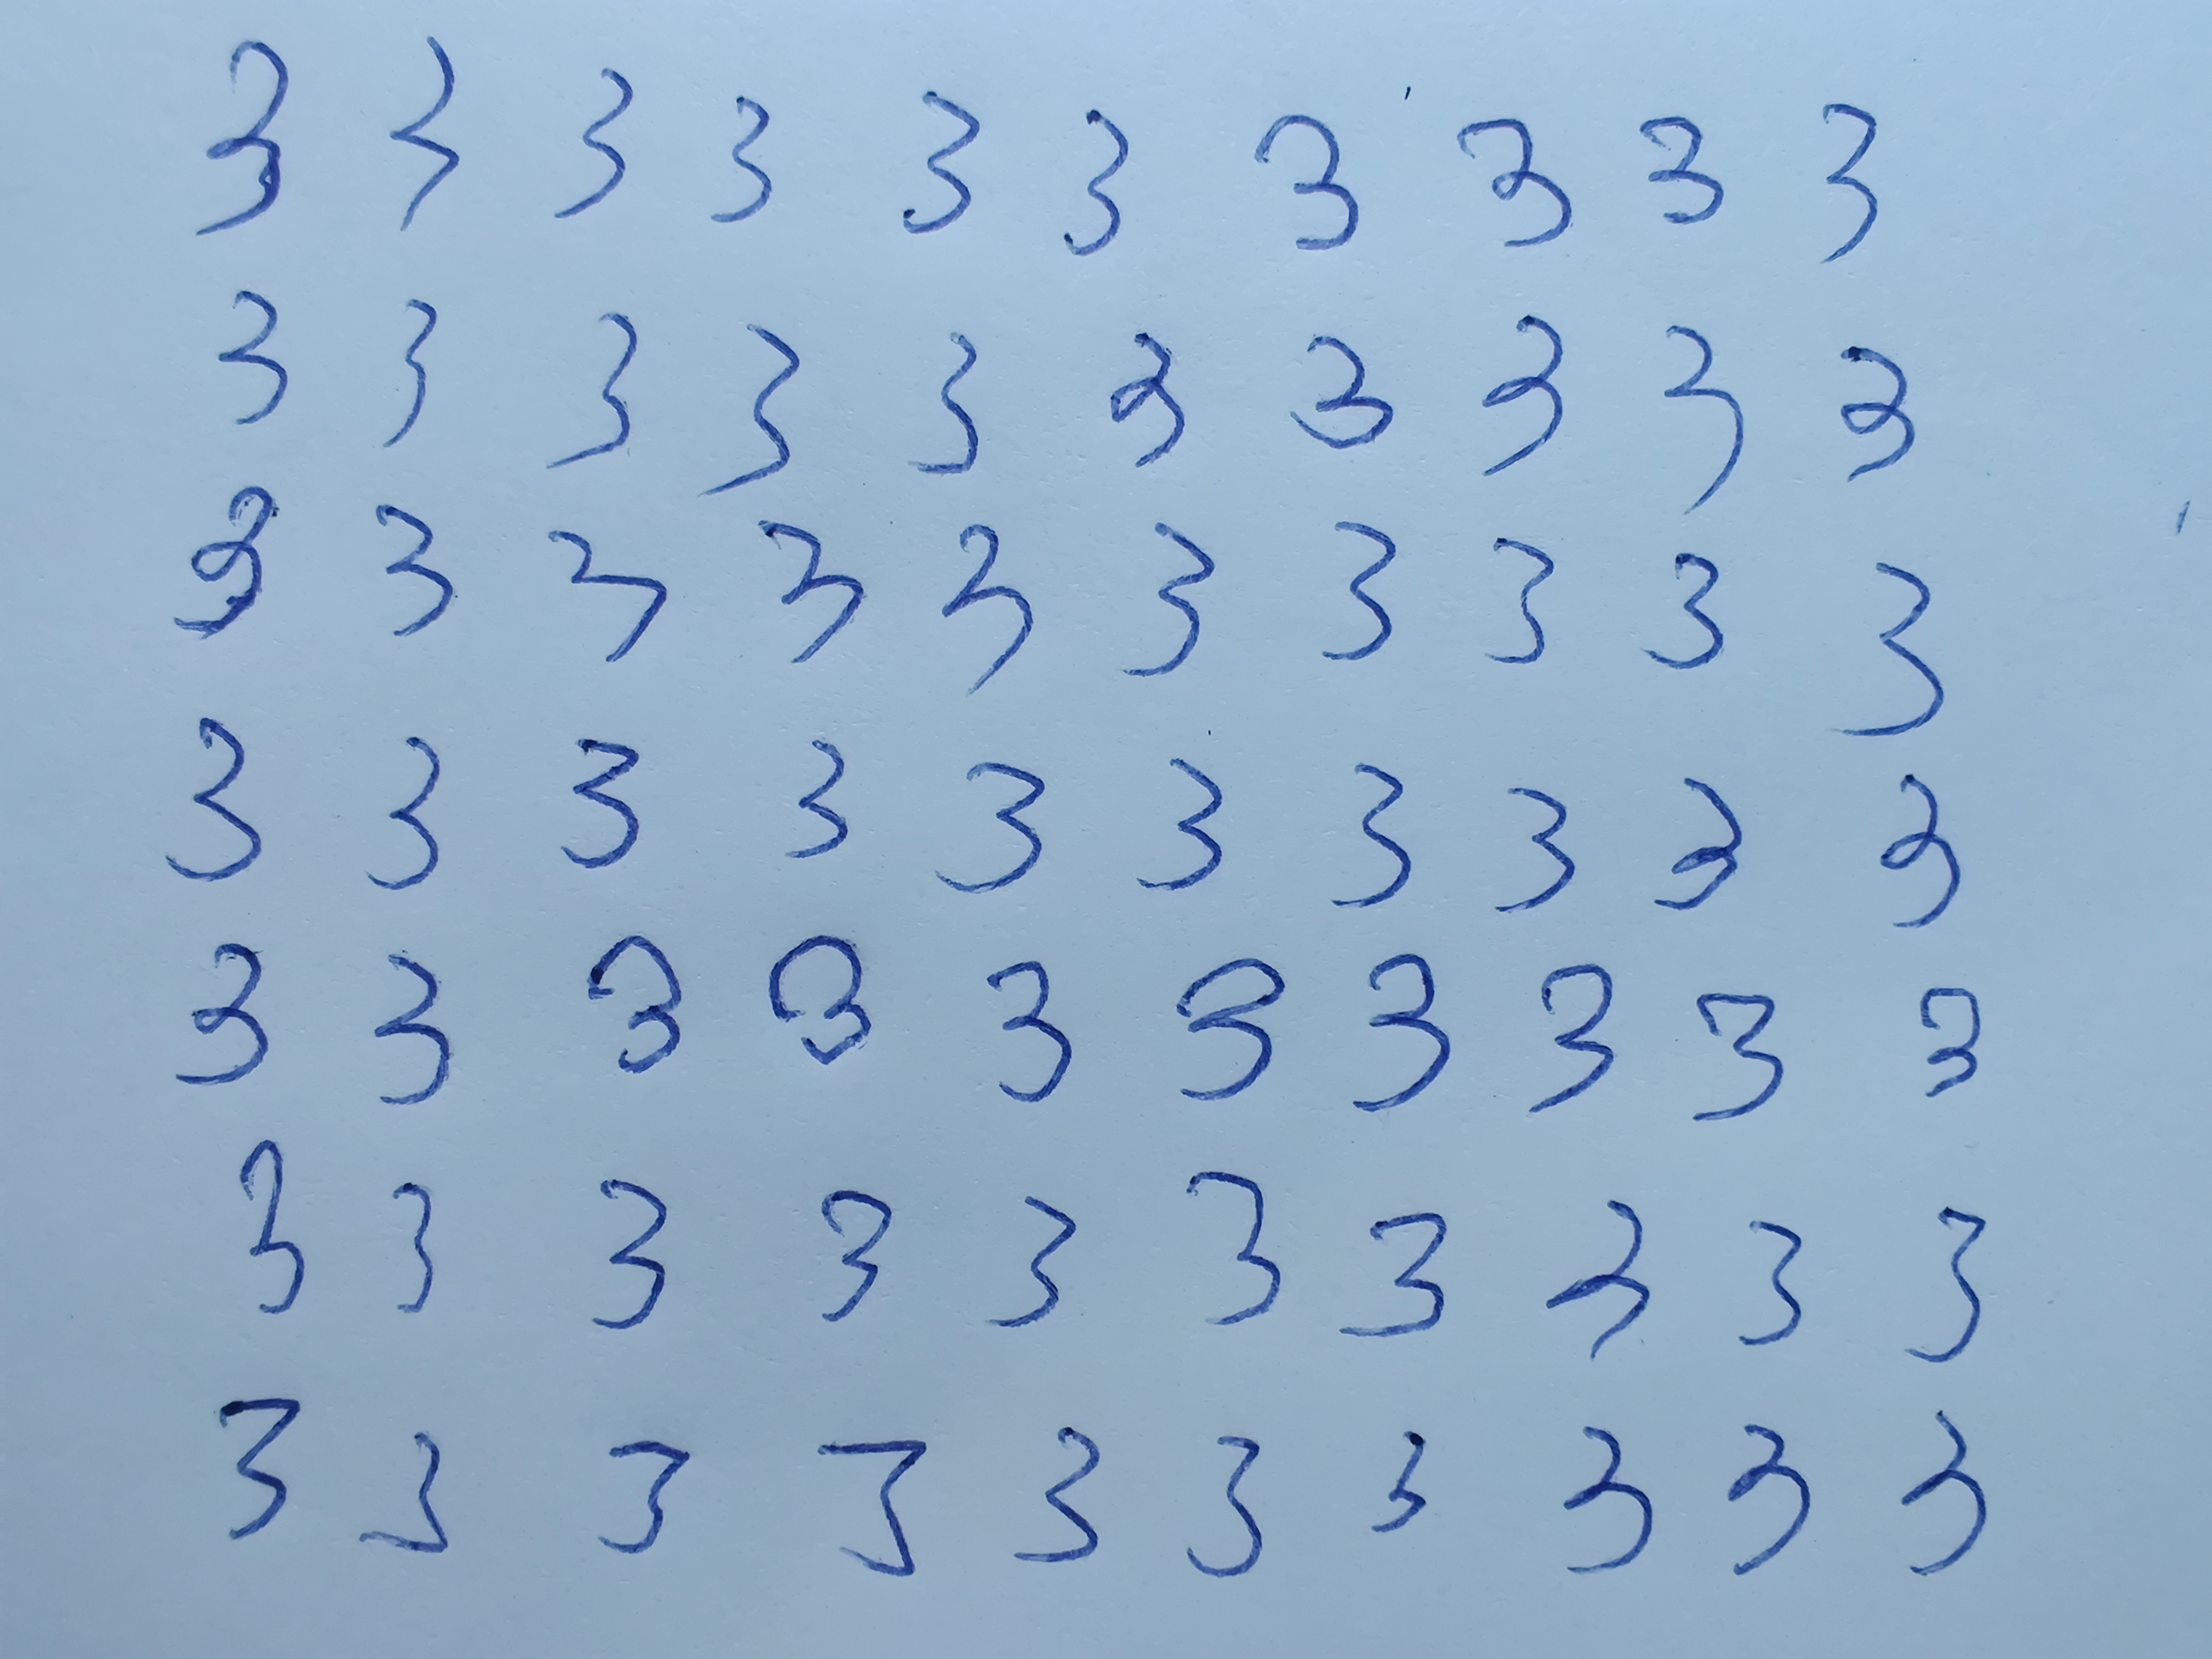 3 3 3 3 3 3 3 3 3 3
3 3 3 3 3 3 3 3 3 3
3 3 3 3 3 3 3 3 3 3
3 3 3 3 3 3 3 3 3 3
3 3 3 3 3 3 3 3 3 3
3 3 3 3 3 3 3 3 3 3
3 3 3 3 3 3 3 3 3 3